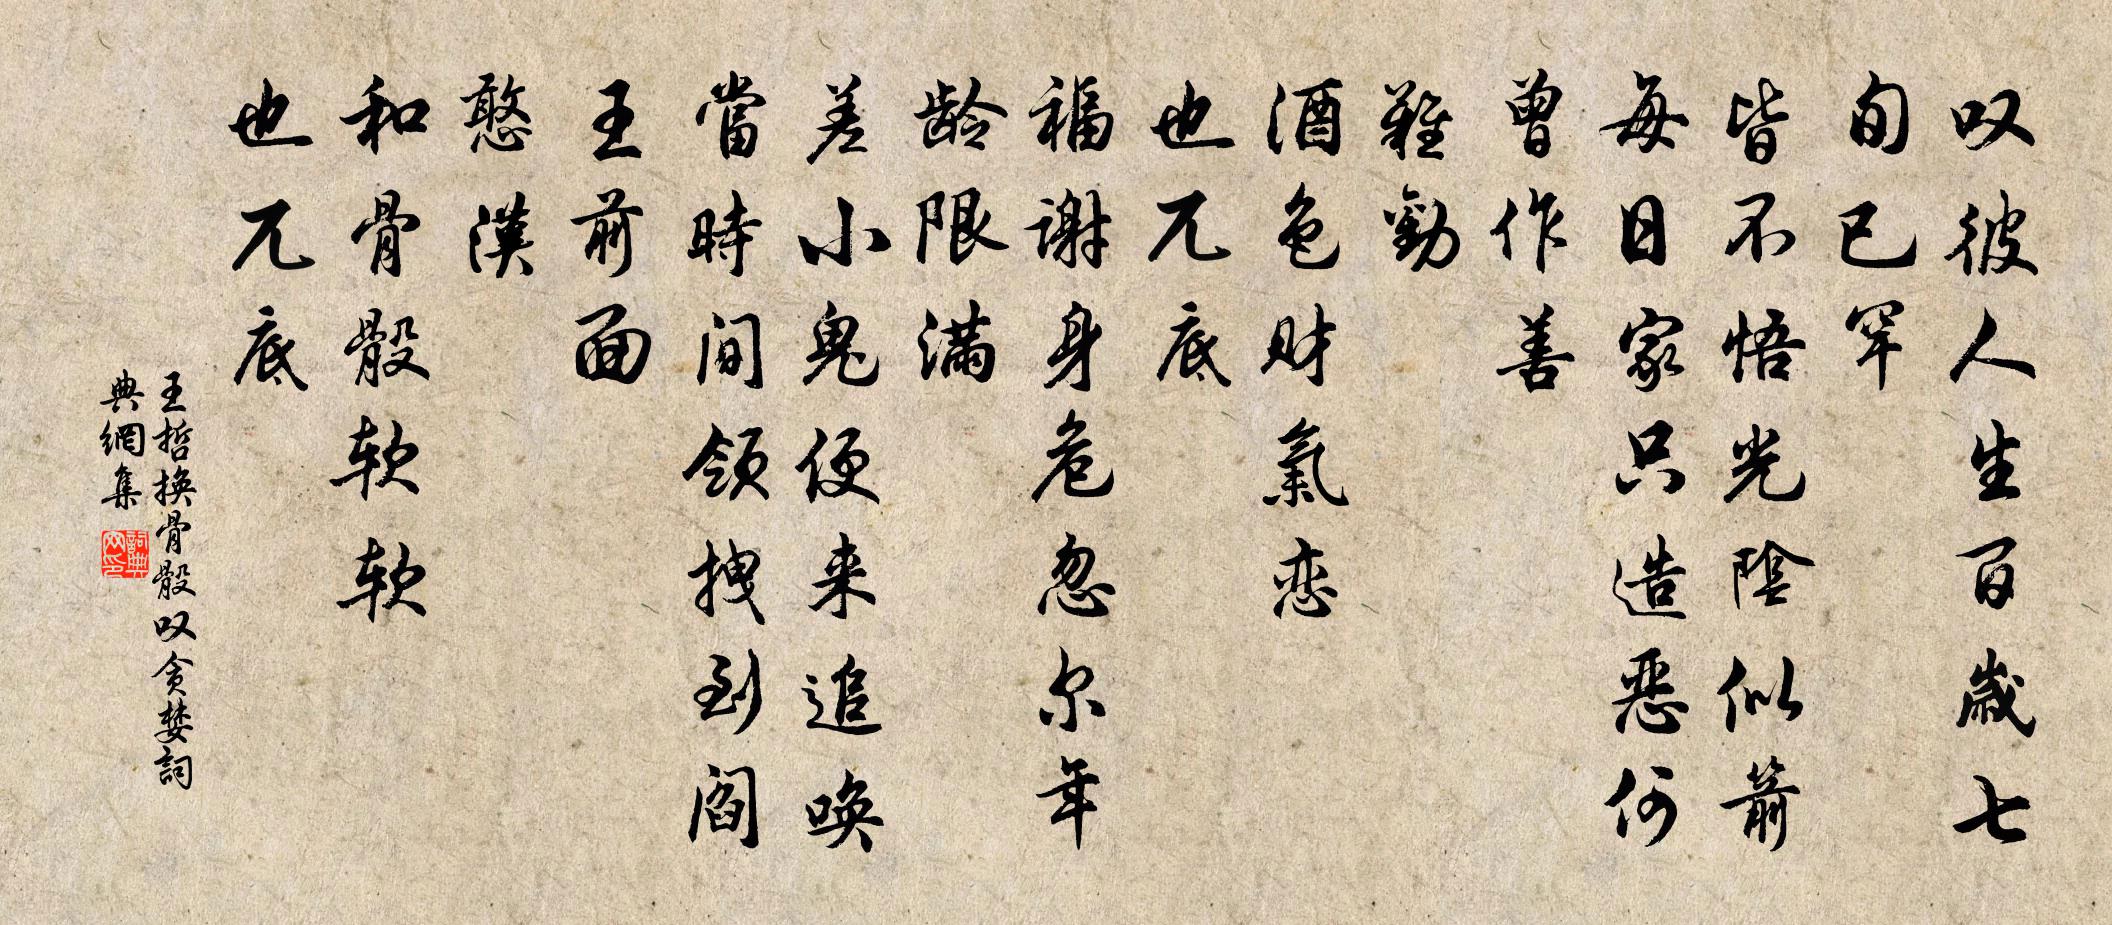 叹彼人生百歲七
旬已罕
皆不悟光陰似箭
每日家只造恶何
曾作善
難勸
酒色财氣恋
也兀底
福谢身危忽尔年
龄限满
差小鬼便来追唤
當時间领拽到阎
王前面
憨漢
和骨骰软软
也兀底
王哲换骨骰叹贪婪詞
典網集
詞典网印